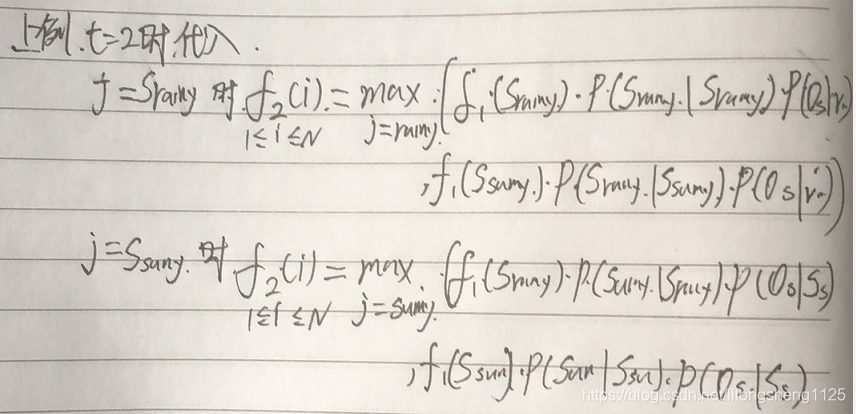 上例,t=2时.代入.
j=Srainy 时 f₂(i) = max (f₁(Srainy)·P(Srainy|Srainy)·P(Os|r)
1≤i≤N j=rainy
,f₁(Ssunny)·P(Srainy|Ssunny)·P(Os|r))
j=Ssunny 时 f₂(i) = max (f₁(Srainy)·P(Sunny|Srainy)·P(Os|Ss)
1≤i≤N j=sunny
,f₁(Ssun)·P(Sun|Ssu)·P(Os|Ss)
https://blog.csdn.net/litongsheng1125